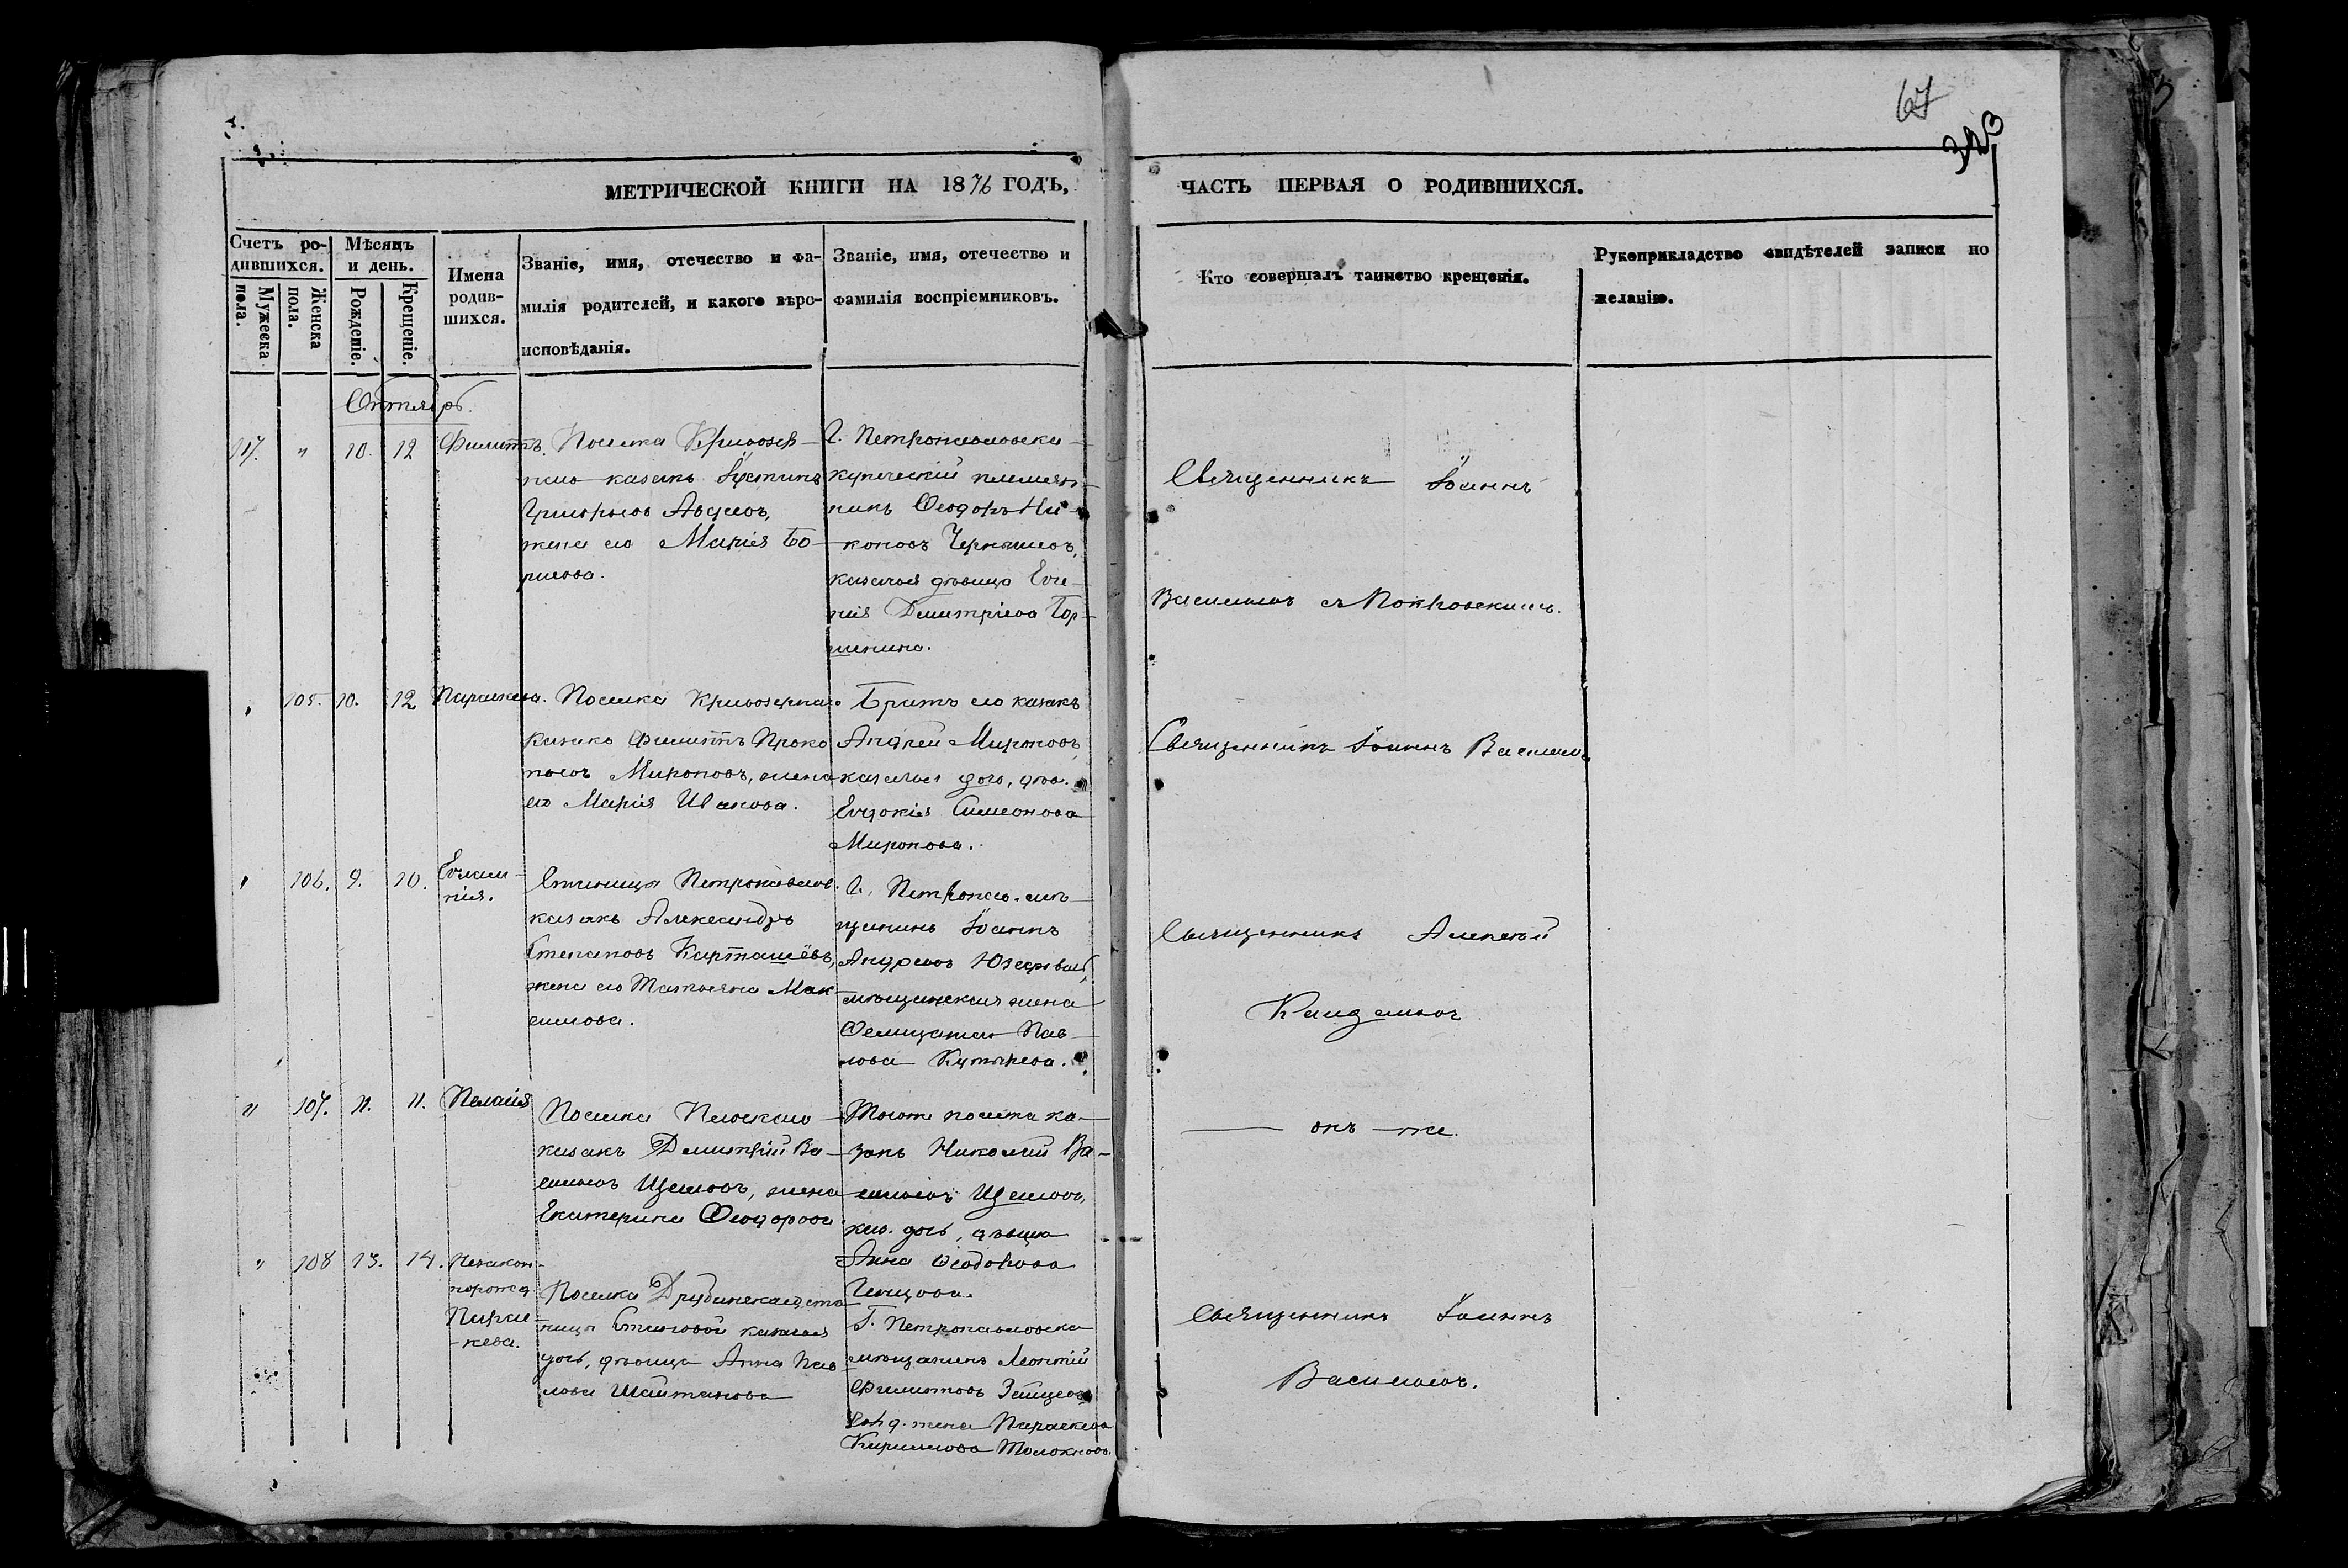 67
323
МЕТРИЧЕСКОЙ КНИГИ НА 1876 ГОДЪ,
ЧАСТЬ ПЕРВАЯ О РОДИВШИХСЯ.
Счетъ ро-
дившихся.
Мужеска
пола.
Женска
пола.
Мѣсяцъ
и день.
Рожденіе.
Крещеніе.
Имена
родив-
шихся.
Званіе, имя, отечество и фа-
милія родителей, и какого вѣро-
исповѣданія.
Званіе, имя, отечество и
фамилія воспріемниковъ.
Кто совершалъ таинство крещенія.
Рукоприкладство свидѣтелей записи по
желанію.
Октябрь.
117. " 10. 12 Филиппъ.
Поселка Кривоозер-
наго казакъ Іустинъ
Григорьевъ Авдеевъ,
жена его Марія Бо-
рисова.
Г. Петропавловска
купеческій племян-
никъ Ѳеодоръ Ни-
коновъ
казачья дѣвица Евге-
нія Димитріева Бор-
шенина.
Священникъ Іоаннъ
Васильевъ Покровскимъ.
" 105. 10. 12 Параскева.
Поселка Кривоозернаго
казакъ Филиппъ Проко
пьевъ Мироновъ, жена
его Марія Иванова.
Братъ его казакъ
Андрей Мироновъ,
казачья дочь, дѣв.
Евдокія Симеонова
Миронова.
Священникъ Іоаннъ Васильевъ
" 106. 9. 10. Евлам-
пія.
Станицы Петропавлов.
казакъ Александръ
Степановъ Карташёвъ,
жена его Татьяна Мак
симова.
Г. Петропав. мѣ-
щанинъ Іоаннъ
Андреевъ
мѣщанская жена
Ѳелицата Пав-
лова
Священникъ Алексѣй
" 107. 11. 11. Пелагія
Поселка Плоскаго
казакъ Димитрій Ва-
сильевъ Щегловъ, жена
Екатерина Ѳеодорова
Тогоже поселка ка-
закъ Николай Ва-
сильевъ Щегловъ,
каз. дочь, дѣвица
Анна Ѳеодорова
онъ-же.
" 108 13. 14. Незакон-
норожд
Парас-
кева.
Поселка ста
ницы казачья
дочь, дѣвица Анна Пав
лова Шайтанова
Г. Петропавловска
мѣщанинъ Леонтій
Филиповъ Зайцевъ
жена Параскева
Кириллова Толокнова.
Священникъ Іоаннъ
Васильевъ.